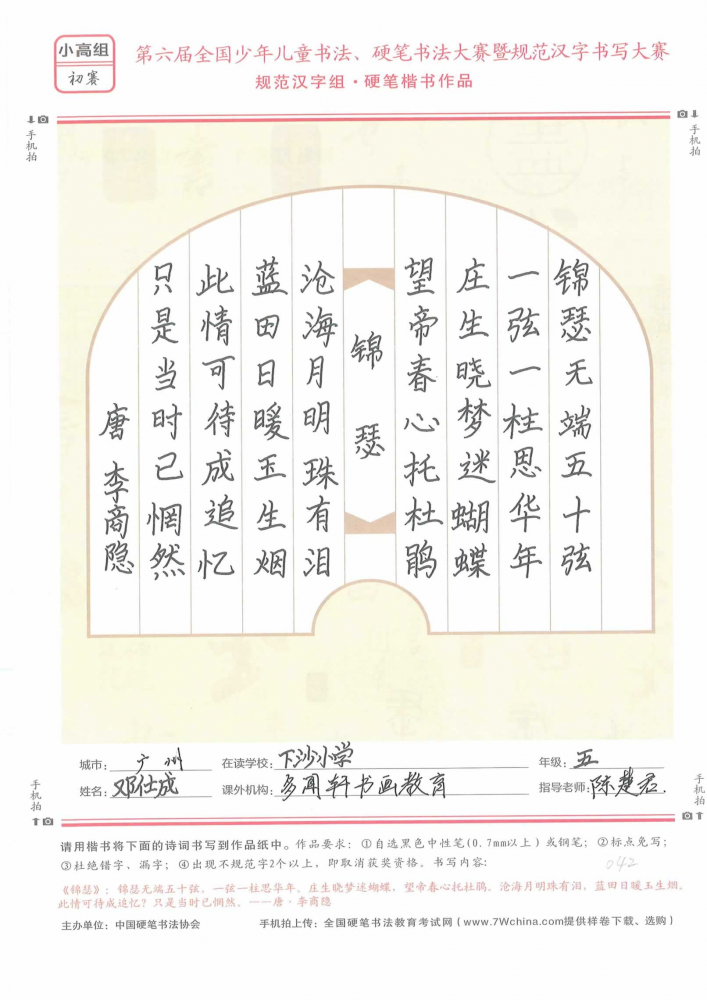 小高组
初赛
第六届全国少年儿童书法、硬笔书法大赛暨规范汉字书写大赛
规范汉字组·硬笔楷书作品
手机拍
手机拍
锦瑟无端五十弦
一弦一柱思华年
庄生晓梦迷蝴蝶
望帝春心托杜鹃
锦瑟
沧海月明珠有泪
蓝田日暖玉生烟
此情可待成追忆
只是当时已惘然
唐 李商隐
城市：广州 在读学校：下沙小学 年级：五
姓名：邓仕成 课外机构：多闻轩书画教育 指导老师：陈楚君.
手机拍
手机拍
请用楷书将下面的诗词书写到作品纸中。作品要求：①自选黑色中性笔(0.7mm以上）或钢笔；②标点免写；
③杜绝错字、漏字；④出现不规范字2个以上，即取消获奖资格。书写内容：
042
《锦瑟》：锦瑟无端五十弦，一弦一柱思华年。庄生晓梦迷蝴蝶，望帝春心托杜鹃。沧海月明珠有泪，蓝田日暖玉生烟。
此情可待成追忆？只是当时已惘然。——唐·李商隐
主办单位：中国硬笔书法协会 手机拍上传：全国硬笔书法教育考试网（www.7Wchina.com提供样卷下载、选购）